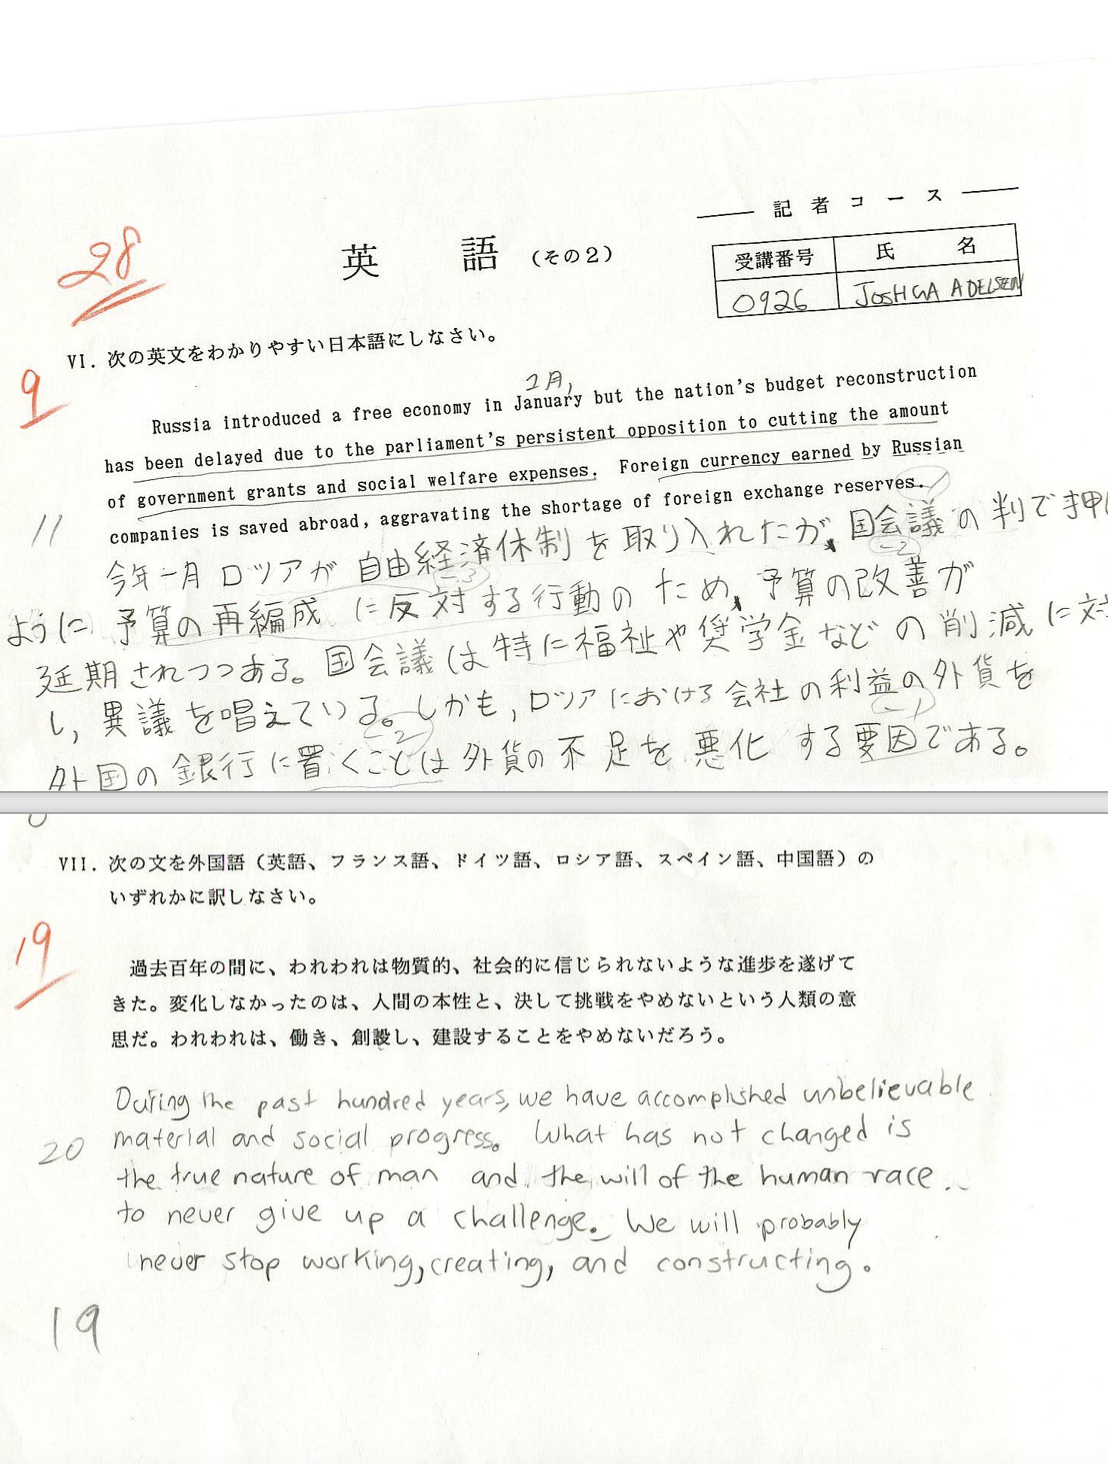 記者コース
28
英 語 (その2)
受講番号 氏 名
0926 JOSHUA ADELSTEIN
VI. 次の英文をわかりやすい日本語にしなさい。
9
1月,
Russia introduced a free economy in January but the nation's budget reconstruction
has been delayed due to the parliament's persistent opposition to cutting the amount
of government grants and social welfare expenses. Foreign currency earned by Russian
companies is saved abroad, aggravating the shortage of foreign exchange reserves.
11
今年一月 ロツアが 自由経済体制 を 取り入れたが、国会議の判で押
ように 予算の再編成 に反対する行動の ため、予算の改善が
-3
-2
延期されつつある。国会議は特に福祉や奨学金などの削減に対
し, 異議を唱えている。しかも, ロツアにおける会社の利益の外貨を
-2
-1
外国の銀行に置くことは外貨の不足を悪化 する要因である。
VII. 次の文を外国語(英語、フランス語、ドイツ語、ロシア語、スペイン語、中国語)の
いずれかに訳しなさい。
19
過去百年の間に、われわれは物質的、社会的に信じられないような進歩を遂げて
きた。変化しなかったのは、人間の本性と、決して挑戦をやめないという人類の意
思だ。われわれは、働き、創設し、建設することをやめないだろう。
During the past hundred years, we have accomplished unbelievable
material and social progress. What has not changed is
20
the true nature of man and the will of the human race
to never give up a challenge. We will probably
never stop working, creating, and constructing.
19